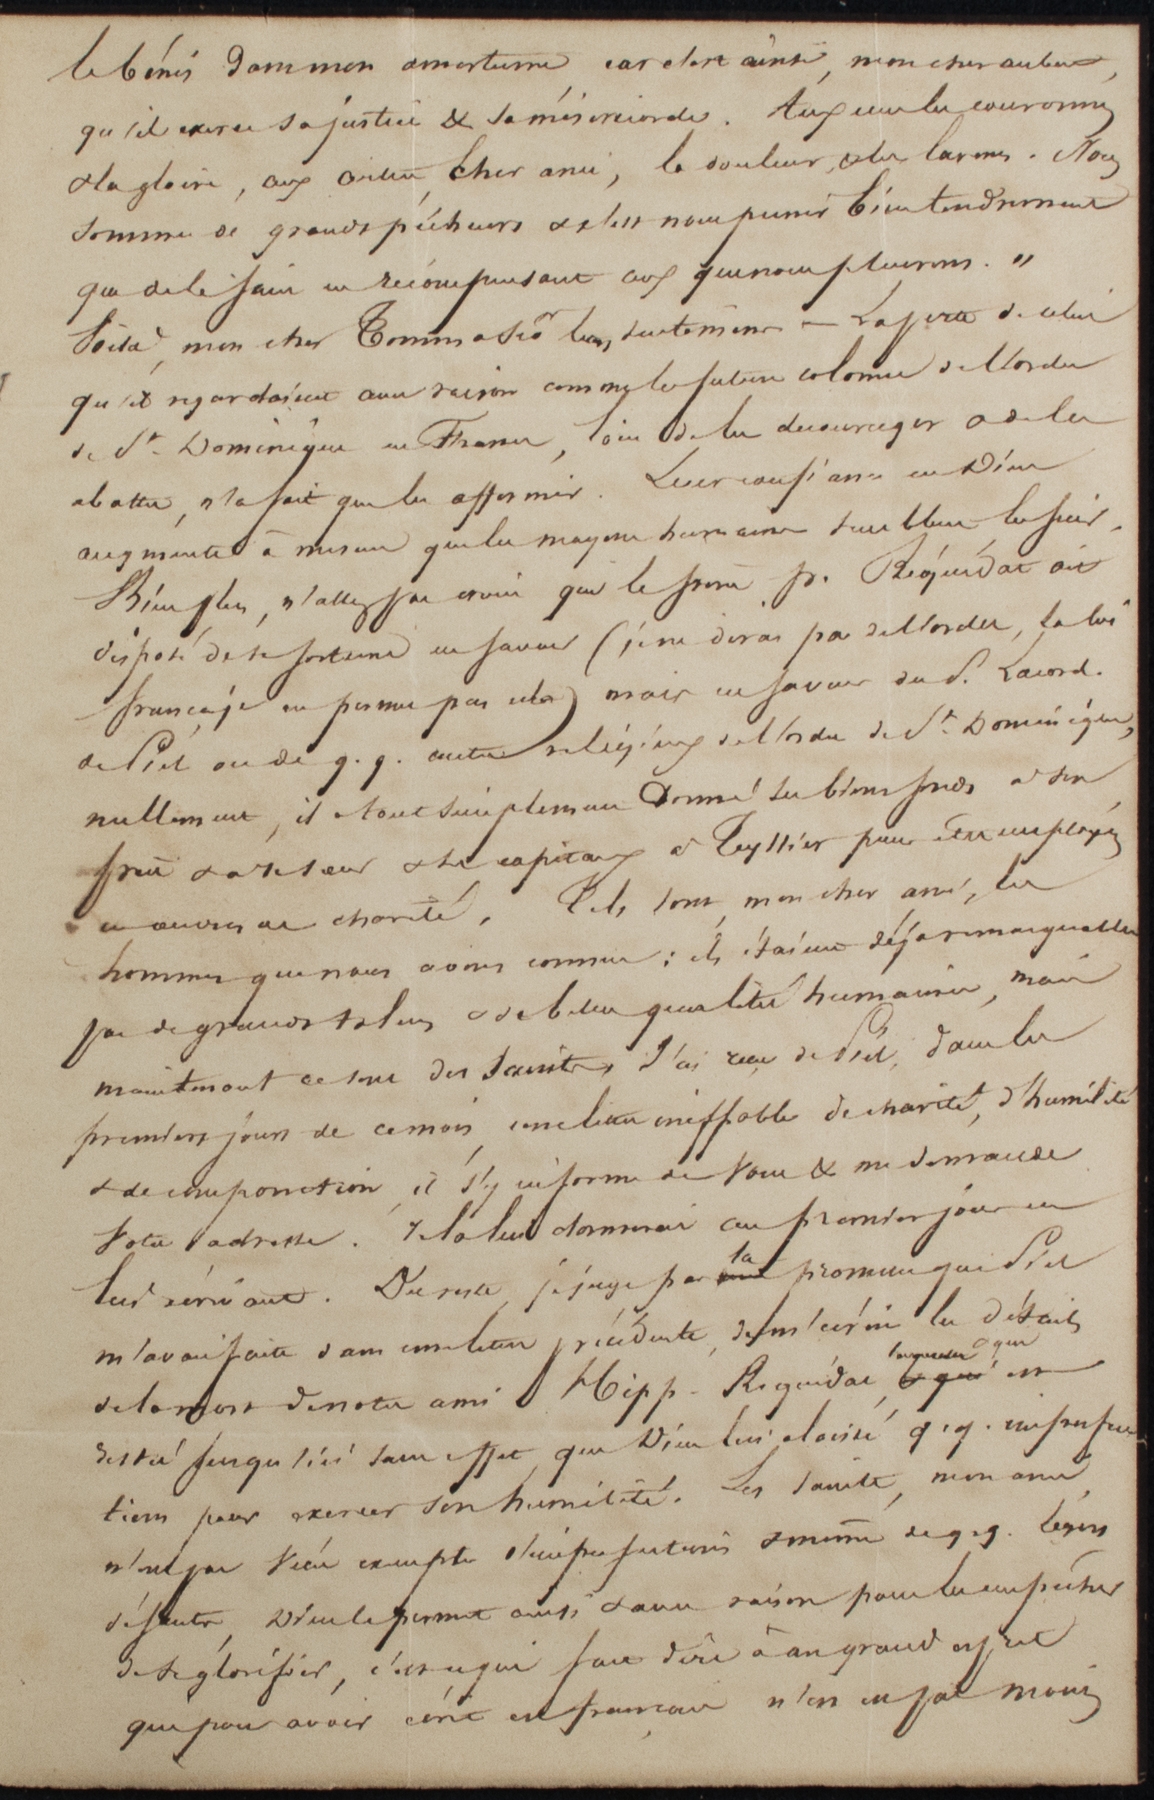 le bénis dans mon amertume car c'est ainsi, mon cher
qu'il exerce sa justice & sa miséricorde. Aux uns les couronnes
& la gloire, aux autres, cher ami, la douleur, & les larmes. Nous
sommes de grands pécheurs & c'est nous punir bien tendrement
que de le faire en récompensant ceux que nous pleurons. "
Voilà, mon cher Tommaseo leurs sentimens – La perte de celui
qu'ils regardaient avec raison comme la future colonne de l'ordre
de St. Dominique en France, loin de les décourager & de les
abattre, n'a fait que les affermir. Leur confiance en Dieu
augmente à mesure que les moyens humains semblent les fuir.
Bien plus, n'allez pas croire que le frère p. Réquédat ait
disposé de sa fortune en faveur (je ne dirai pas de l'ordre, la loi
française ne permet pas cela) mais en faveur du P. Lacord.
de Piel ou de q.q. autre religieux de l'ordre de St. Dominique,
nullement, il a tout simplement donné ses biens fonds à son
frère & à sa sœur & ses capitaux à Teyssier pour être employés
en œuvres de charité. Tels sont, mon cher ami, les
hommes que nous avons connus : ils étaient déjà remarquables
par de grands talens & de belles qualités humaines, mais
maintenant ce sont des saints. J'ai reçu de Piel, dans les
premiers jours de ce mois, une lettre ineffable de charité, d'humilité
& de componction, il s'y informe de vous & me demande
votre adresse. Je la lui donnerai au premier jour en
lui écrivant. Du reste, je juge par la promesse que Piel
m'avait faite dans une lettre précédente, de m'écrire les détails
de la mort de notre ami Hipp. Réquédat, laquelle est
restée jusqu'ici sans effet, que Dieu lui a laissé q.q. imperfec
tions pour exercer son humilité. Les saints, mon ami,
n'ont pas vécu exempts d'imperfections & même de q.q. légers
défauts, Dieu le permet ainsi & avec raison pour les empêcher
de se glorifier, c'est ce qui fait dire à un grand esprit
que pour avoir écrit en français n'en est pas moins